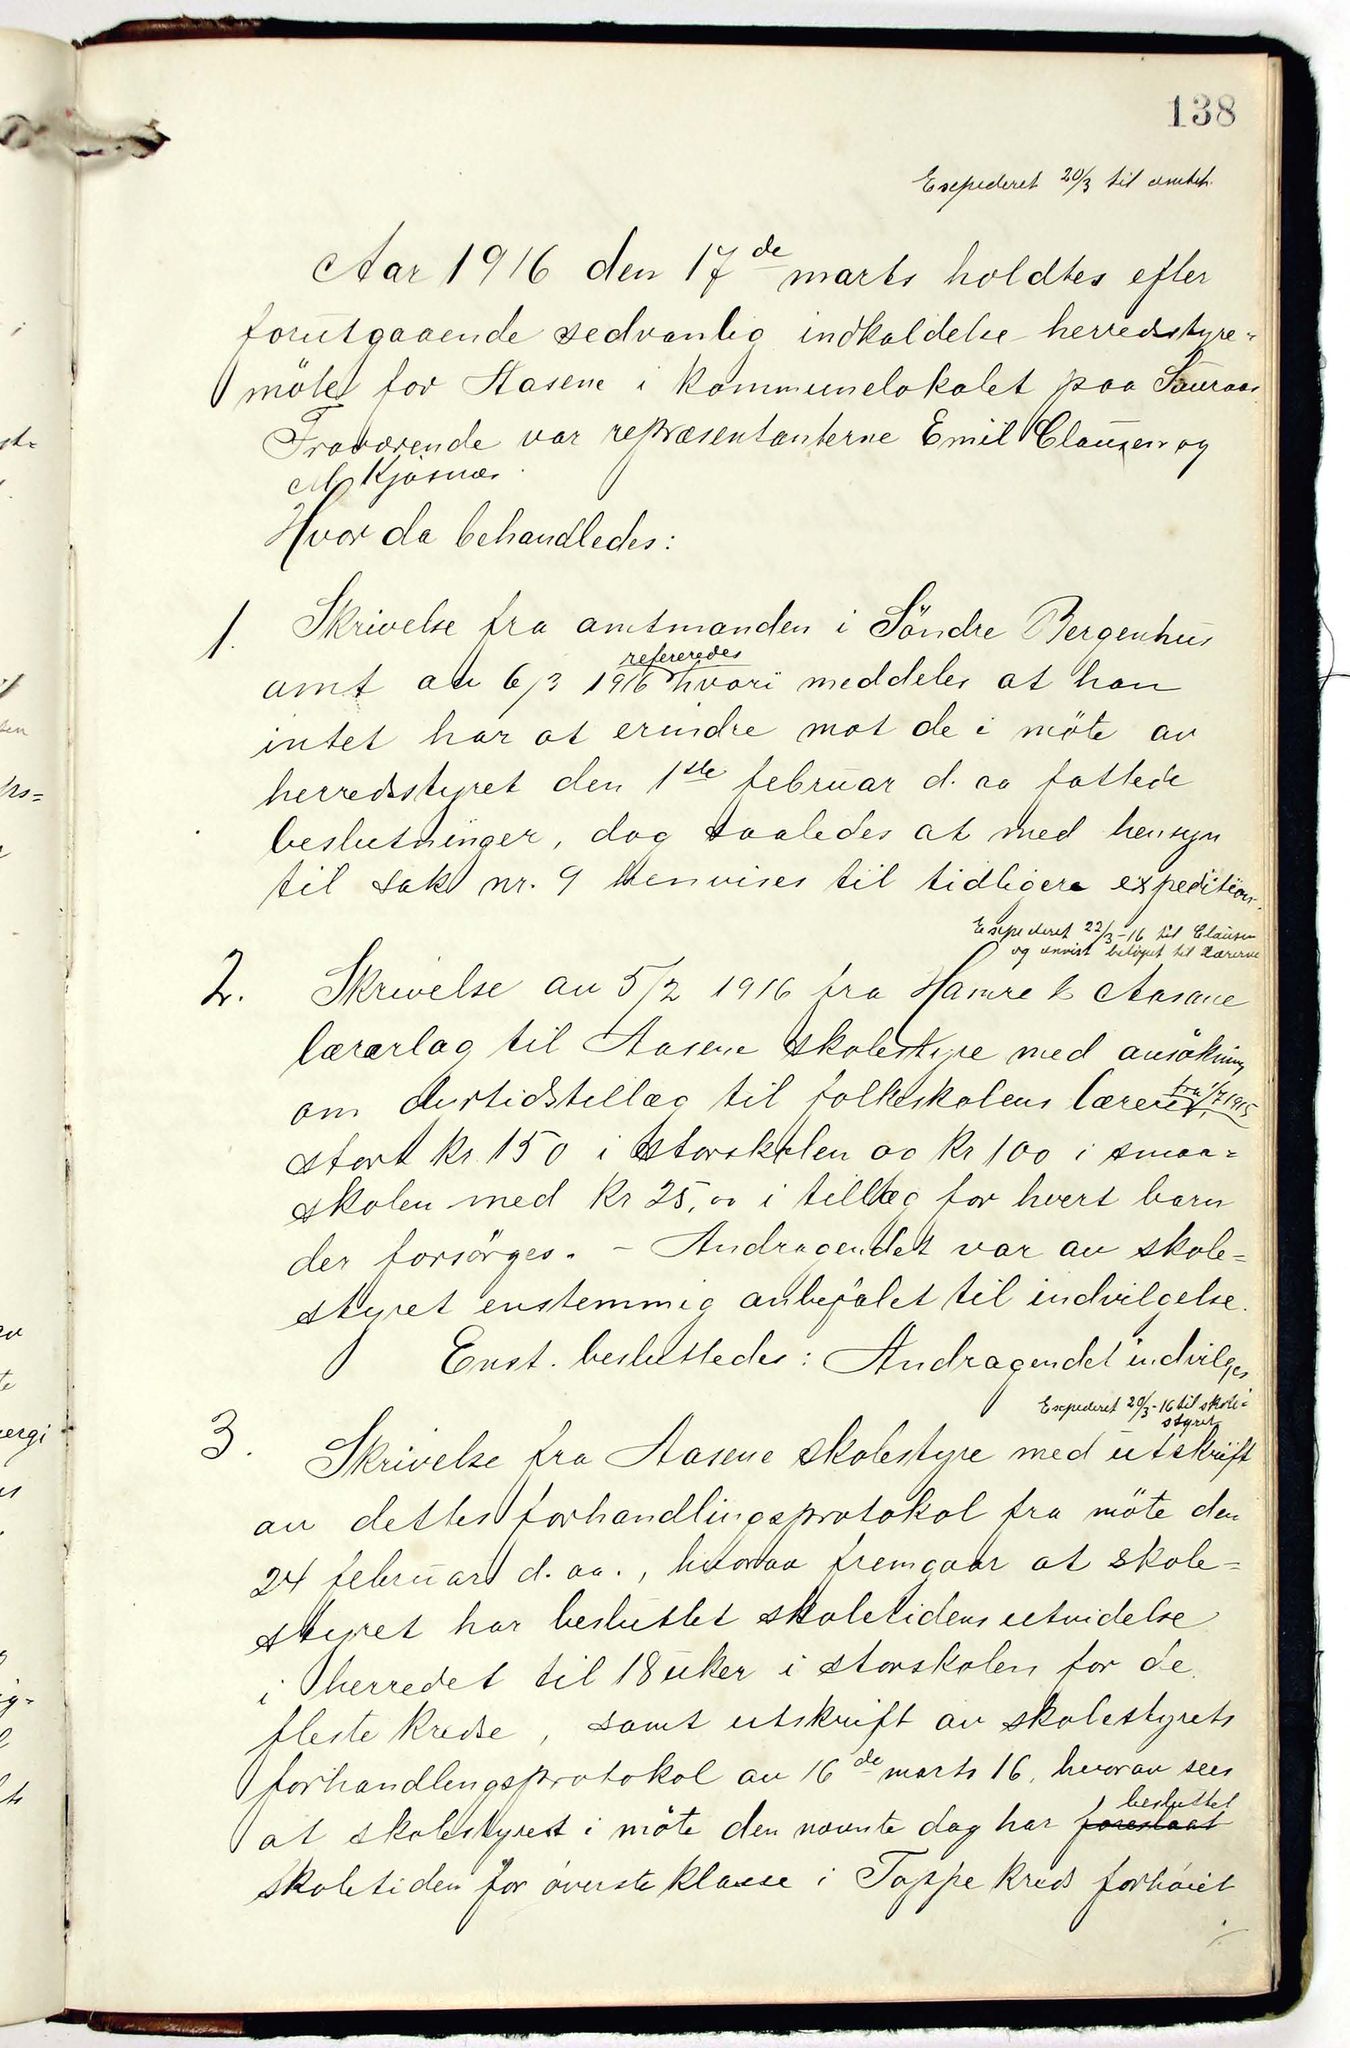 138
Expederet 20/3 til amtet.
Aar 1916 den 17de marts holdtes efter
forutgaaende sedvanlig indkaldelse herredsstyre-
möte for Aasene i kommunelokalet paa Sauraas
Fraværende var repræsentanterne Emil Clausen og
M Kjosnæs.
Hvor da behandledes:
1. Skrivelse fra amtmanden i Söndre Bergenhus
refereredes
amt av 6/3 1916 hvori meddeles at han
intet har at erindre mot de i möte av
herredsstyret den 1ste februar d. aa fattede
beslutninger, dog saaledes at med hensyn
til sak nr. 9 henvises til tidligere expedition.
Expederet 22/3-16 til Clausen
og anvist belöpet til lærerne
2. Skrivelse av 5/2 1916 fra Hamre & Aasane
lærarlag til Aasene skolestyre med ansökning
om dyrtidstillæg til folkeskolens lærere, fra 1/7 1915
stort kr. 150 i storskolen og kr 100 i smaa-
skolen med kr 25,00 i tillæg for hvert barn
der forsörges. - Andragendet var av skole-
styret enstemmig anbefalet til indvilgelse.
Enst. besluttedes: Andragendet indvilges
Expederet 20/3-16 til skole-
styret
3. Skrivelse fra Aasene skolestyre med utskrift
av dettes forhandlingsprotokol fra möte den
24 februar d. aa., hvorav fremgaar at skole-
styret har besluttet skoletidens utvidelse
i herredet til 18 uker i storskolen for de
fleste kredse, samt utskrift av skolestyrets
forhandlingsprotokol av 16de marts 16, hvorav sees
besluttet
at skolestyret i möte den nævnte dag har foreslaat
skoletiden for överste klasse i Toppe kreds forhöiet
./.